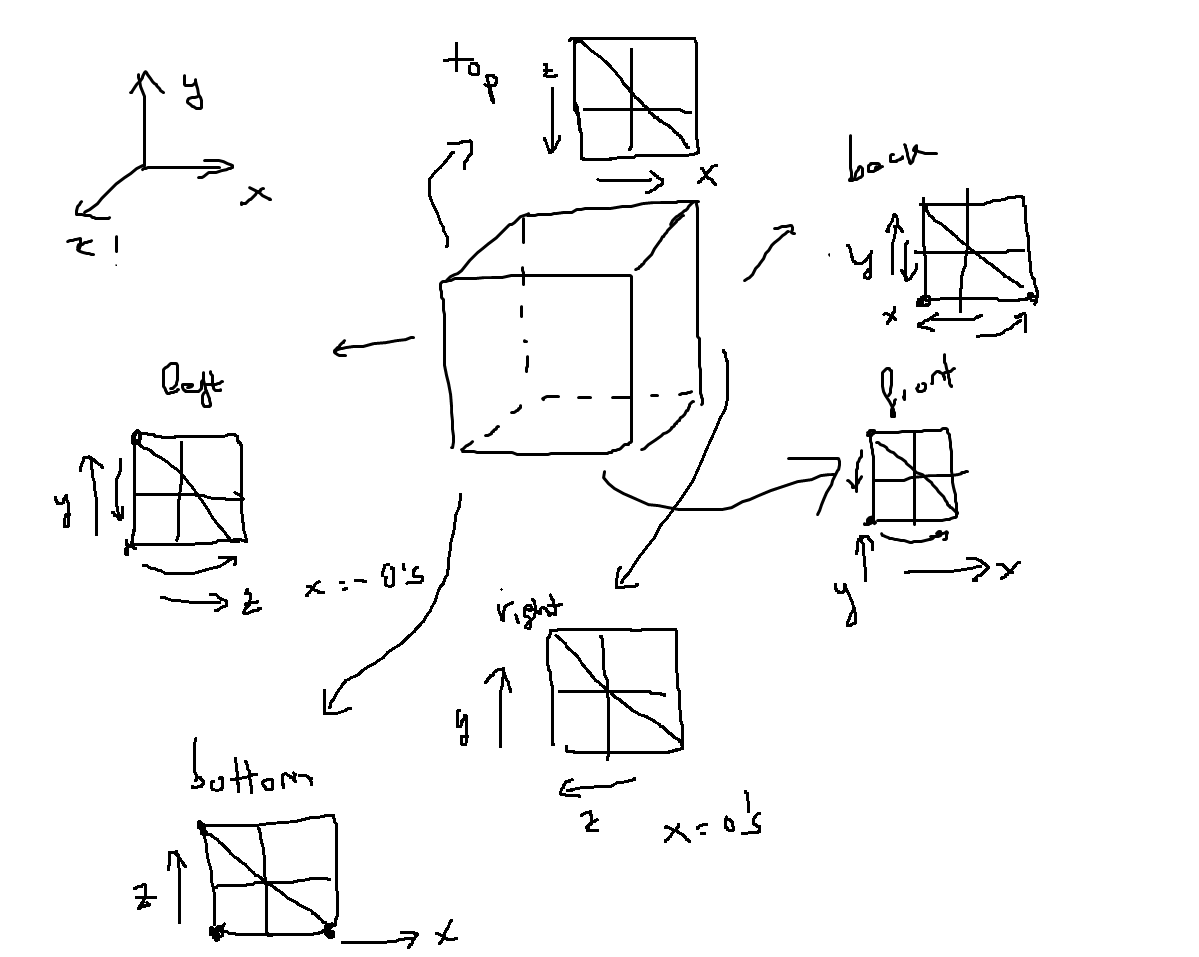 top
z
x
y
x
z
back
y
x
left
y
z
x = - 0's
front
y
x
right
y
z
x = 0's
bottom
z
x